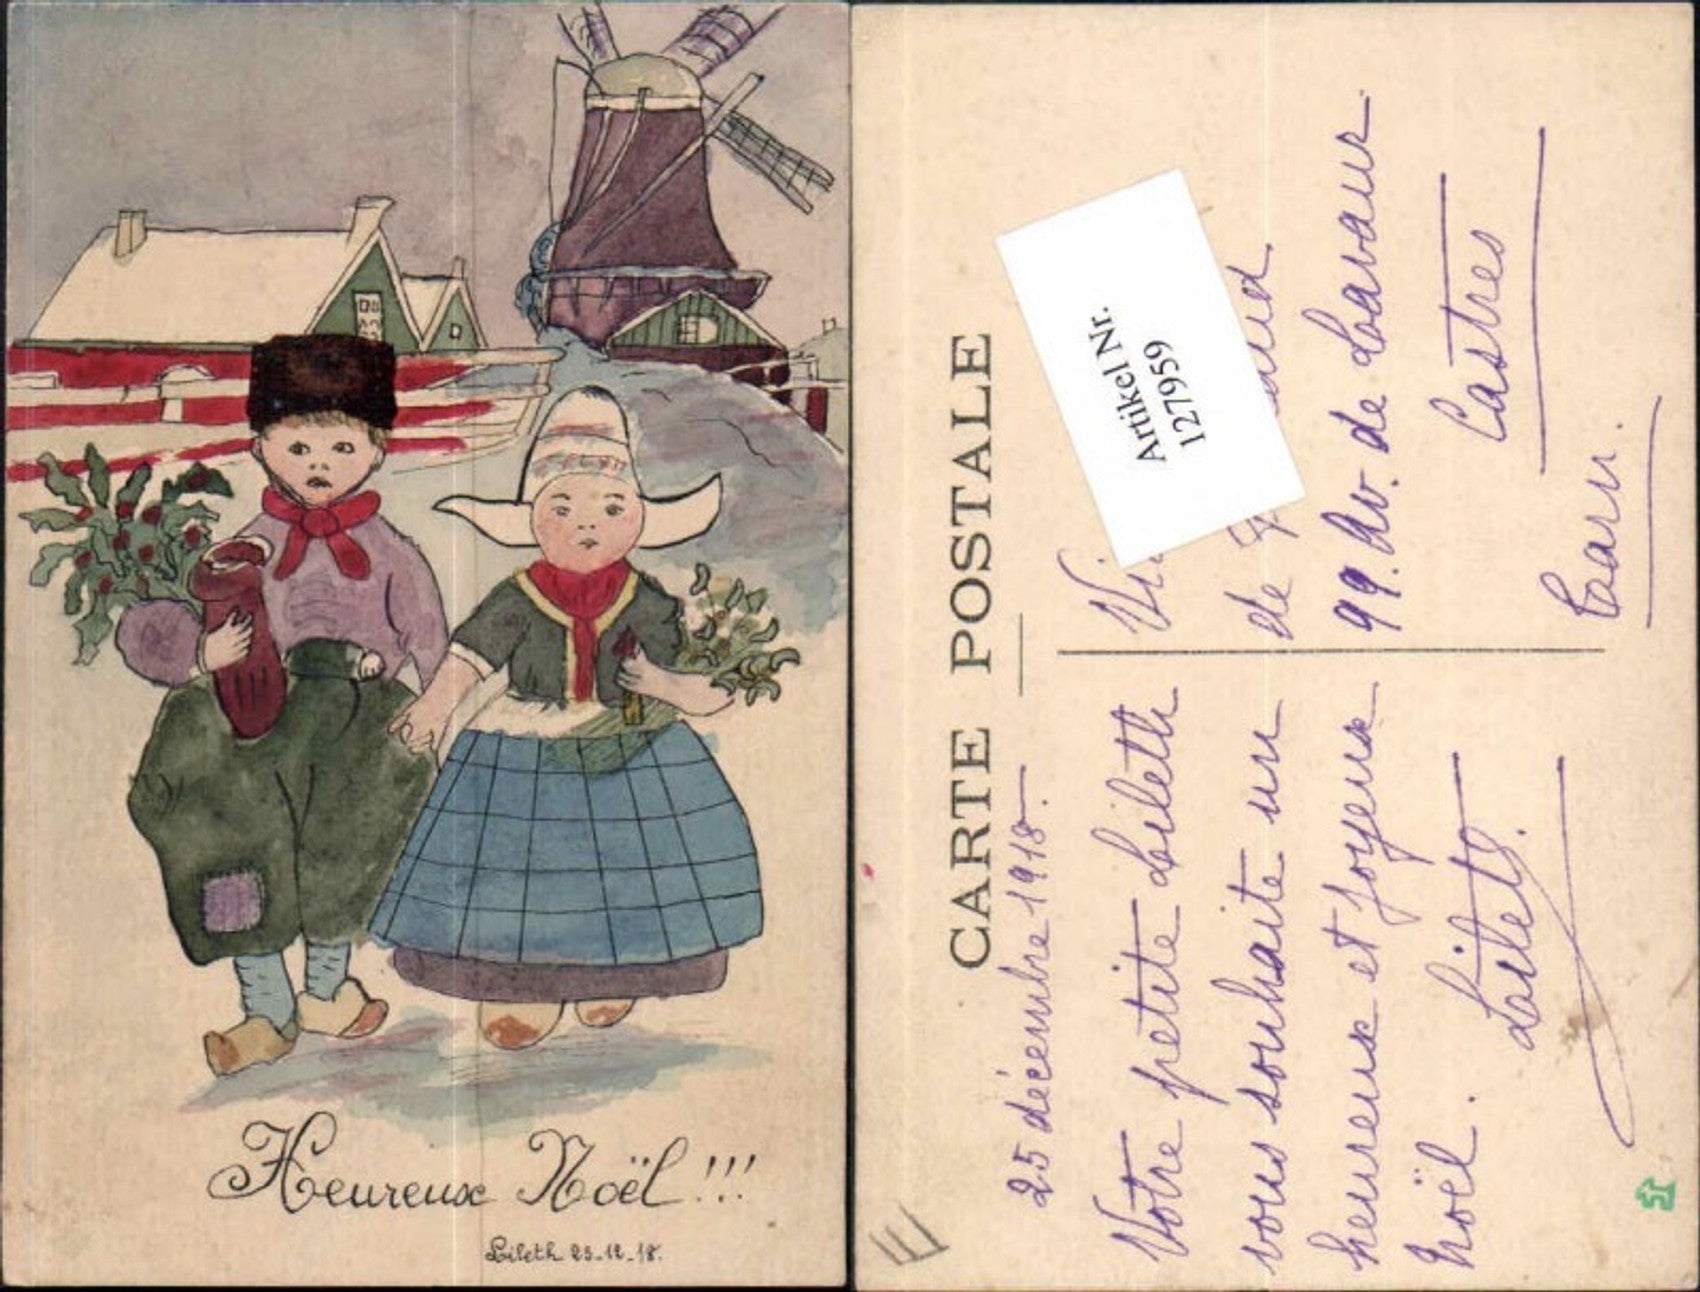 Heureux Noël !!!
Lileth 25-12-18.
CARTE POSTALE
25 décembre 1918.
Votre petite Lileth
vous souhaite un
heureux et joyeux
Noël.
Lileth.
de
99. Av. de Lavaur
Castres
Tarn.
Artikel Nr.
1279959